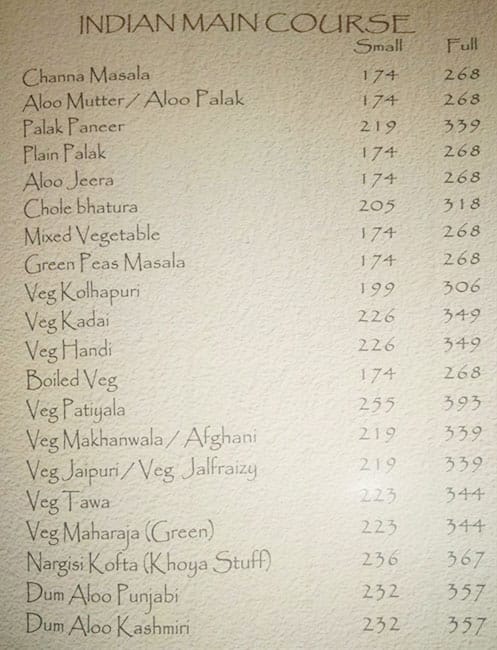 INDIAN MAIN COURSE
Small Full
Channa Masala 174 268
Aloo Mutter / Aloo Palak 174 268
Palak Paneer 219 339
Plain Palak 174 268
Aloo Jeera 174 268
Chole bhatura 205 318
Mixed Vegetable 174 268
Green Peas Masala 174 268
Veg Kolhapuri 199 306
Veg Kadai 226 349
Veg Handi 226 349
Boiled Veg 174 268
Veg Patiyala 255 393
Veg Makhanwala / Afghani 219 339
Veg Jaipuri / Veg Jalfraizy 219 339
Veg Tawa 223 344
Veg Maharaja (Green) 223 344
Nargisi Kofta (Khoya Stuff) 236 367
Dum Aloo Punjabi 232 357
Dum Aloo Kashmiri 232 357